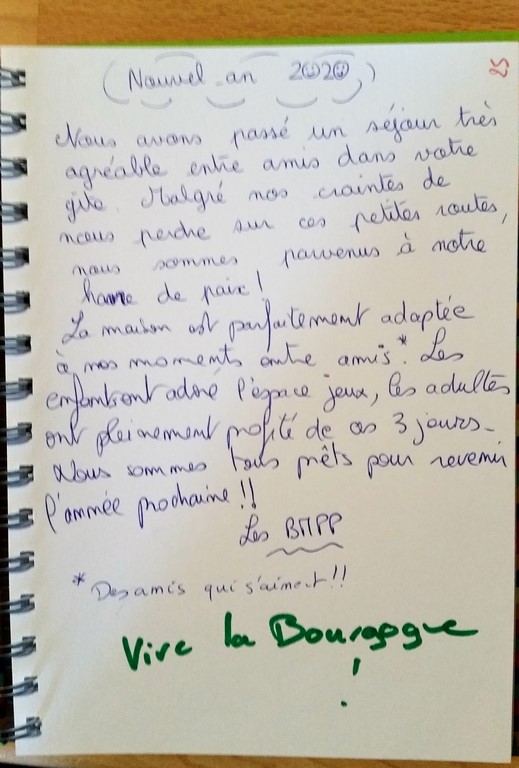 (Nouvel an 2020)
25
Nous avons passé un séjour très
agréable entre amis dans votre
gite. Malgré nos craintes de
nous perdre sur ces petites routes,
nous sommes parvenus à notre
havre de paix!
La maison est parfaitement adaptée
à nos moments entre amis*. Les
enfants ont adoré l'espace jeux, les adultes
ont pleinement profité de ces 3 jours.
Nous sommes tous prêts pour revenir
l'année prochaine!!
Les BMPP
* Des amis qui s'aiment!!
Vive la Bourgogne
!